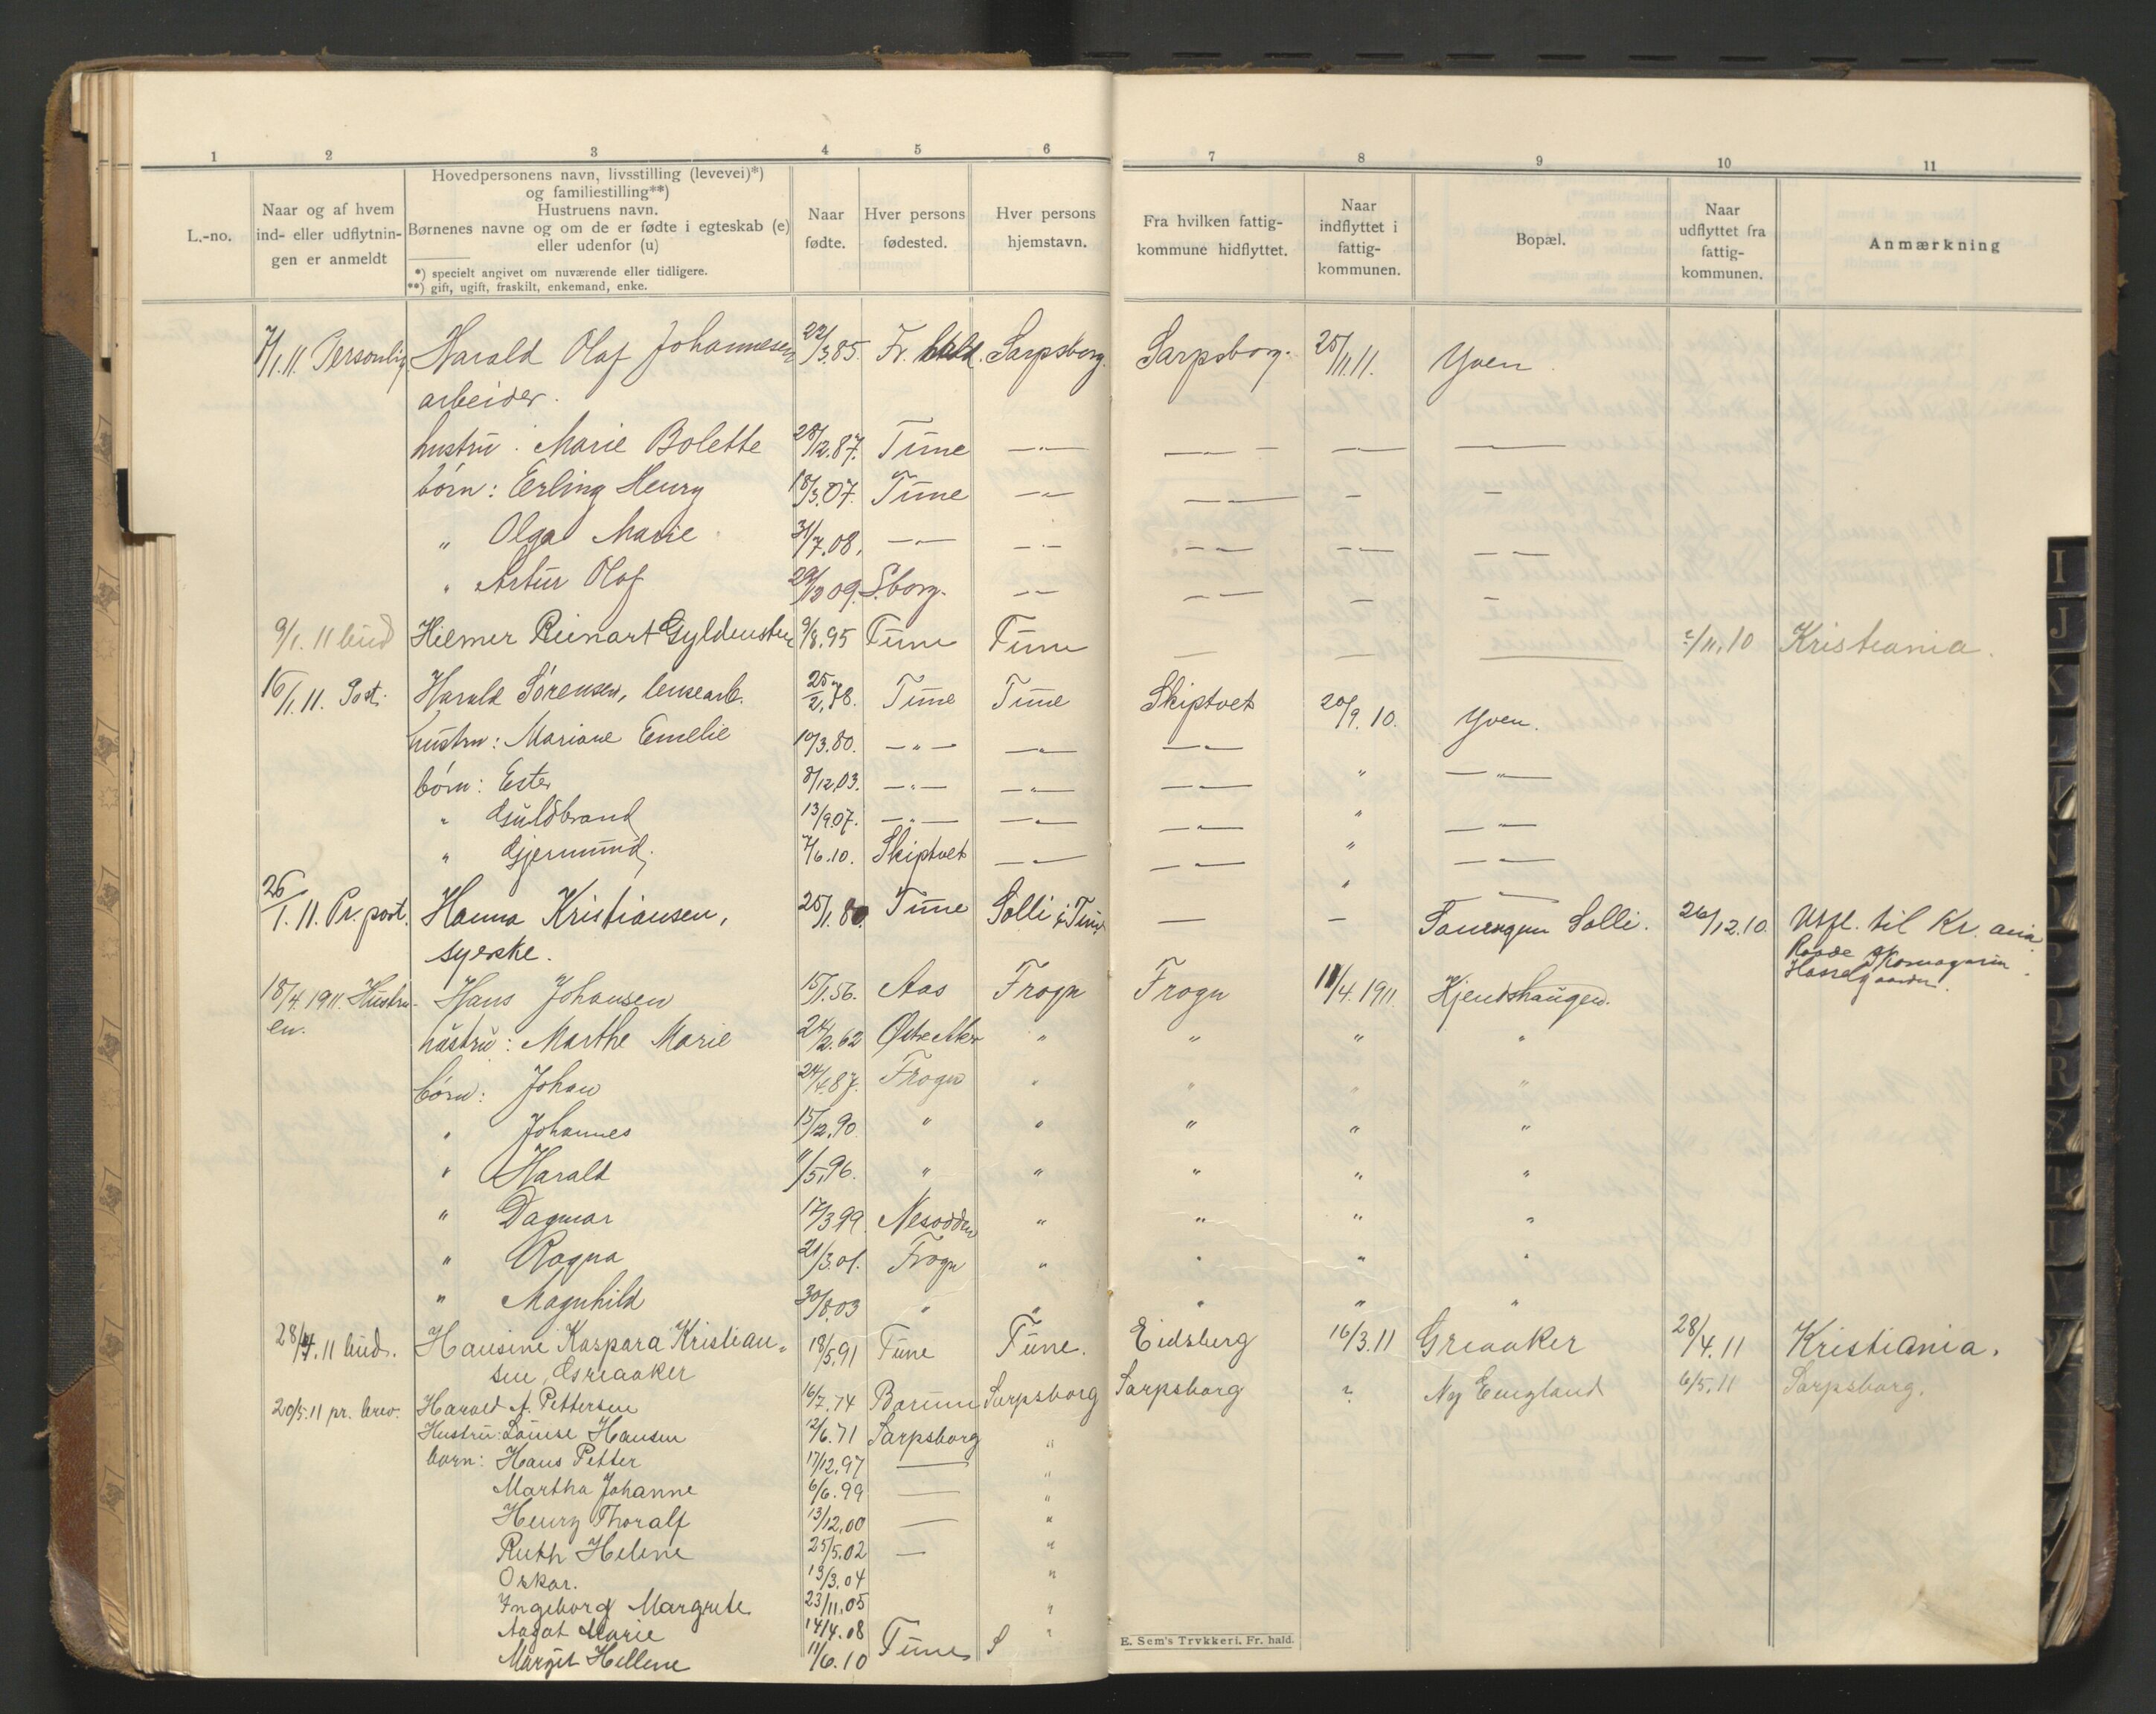 1 2 3 4 5 6 7 8 9 10 11
L.-no.
Naar og af hvem
ind- eller udflytnin-
gen er anmeldt
Hovedpersonens navn, livsstilling (levevei)*)
og familiestilling**)
Hustruens navn.
Børnenes navne og om de er fødte i egteskab (e)
eller udenfor (u)
*) specielt angivet om nuværende eller tidligere.
**) gift, ugift, fraskilt, enkemand, enke.
Naar
fødte.
Hver persons
fødested.
Hver persons
hjemstavn.
Fra hvilken fattig-
kommune hidflyttet.
Naar
indflyttet i
fattig-
kommunen.
Bopæl.
Naar
udflyttet fra
fattig-
kommunen.
Anmærkning
7/1.11. Personlig. Harald Olaf Johannesen 22/3.85. Fr. hald. Sarpsborg. Sarpsborg. 25/11.11. Yven
arbeider.
hustru: Marie Bolette 28/12.87. Tune —"— —"— — —
børn: Erling Henry 18/3.07. Tune —"— —"— — —
" Olga Marie 31/7.08. —"— —"— —"— —"— —"—
" Artur Olaf 29/12 09. S.borg. —"— —"— — —
9/1.11 bud Hilmer Reinart Gyldensten 9/8.95 Tune Tune — — — ?/11.10 Kristiania.
16/1.11. Post. Harald Sørensen, lensearb. 25/2.78. Tune Tune Skiptvet 20/9.10. Yven.
hustru: Mariane Emelie 10/3.80. —"— —"— —"—
børn: Ester 8/12.03. —"— —"— —"— " —"—
" Guldbrand 13/9.07. —"— —"— —"— " —"—
" Gjermund. 7/6.10. Skiptvet —"— —"— " —"—
" —"—
26/1.11. Pr. post. Hanna Kristiansen, 25/1.80. Tune Solli i Tune — — Solli. 26/12.10. Utfl. til Kr.ania.
syerske. Raade
18/4.1911. Hustru- Hans Johansen 15/1.56. Aas Frogn Frogn 11/4.1911. Kjendshaugen.
en.
hustru: Marthe Marie 24/2.62 Østre Aker " " " "
børn: Johan 24/4.87. Frogn " " " "
" Johannes 15/12.90 " " " " "
" Harald 11/5.96. " " " " "
" Dagmar 17/3.99. Nesodden " " " "
" Ragna 21/3.01. Frogn " " " "
" Magnhild 30/8.03 " " " " "
28/4.11 bud. Hansine Kaspara Kristian- 18/5.91 Tune Tune. Eidsberg 16/3.11 Greaaker 28/4.11 Kristiania.
sen, Greaaker
20/5.11 pr. brev. Harald A. Pettersen 16/7.74 Bærum Sarpsborg Sarpsborg ? Ny England 6/5.11 Sarpsborg.
Hustru: Louise Hansen 12/6.71 Sarpsborg "
barn: Hans Petter 17/12.97 — "
Martha Johanne 6/6.99 — "
Henry Thoralf 13/12.00 — "
Ruth Helene 25/5.02 — "
Oskar. 13/3.04 "
Ingeborg Margrete 23/11.05 "
Aagot Marie 14/4.08 "
Margit Hellene 11/6.10 Tune S
E. Sem's Trykkeri. Fr. hald.